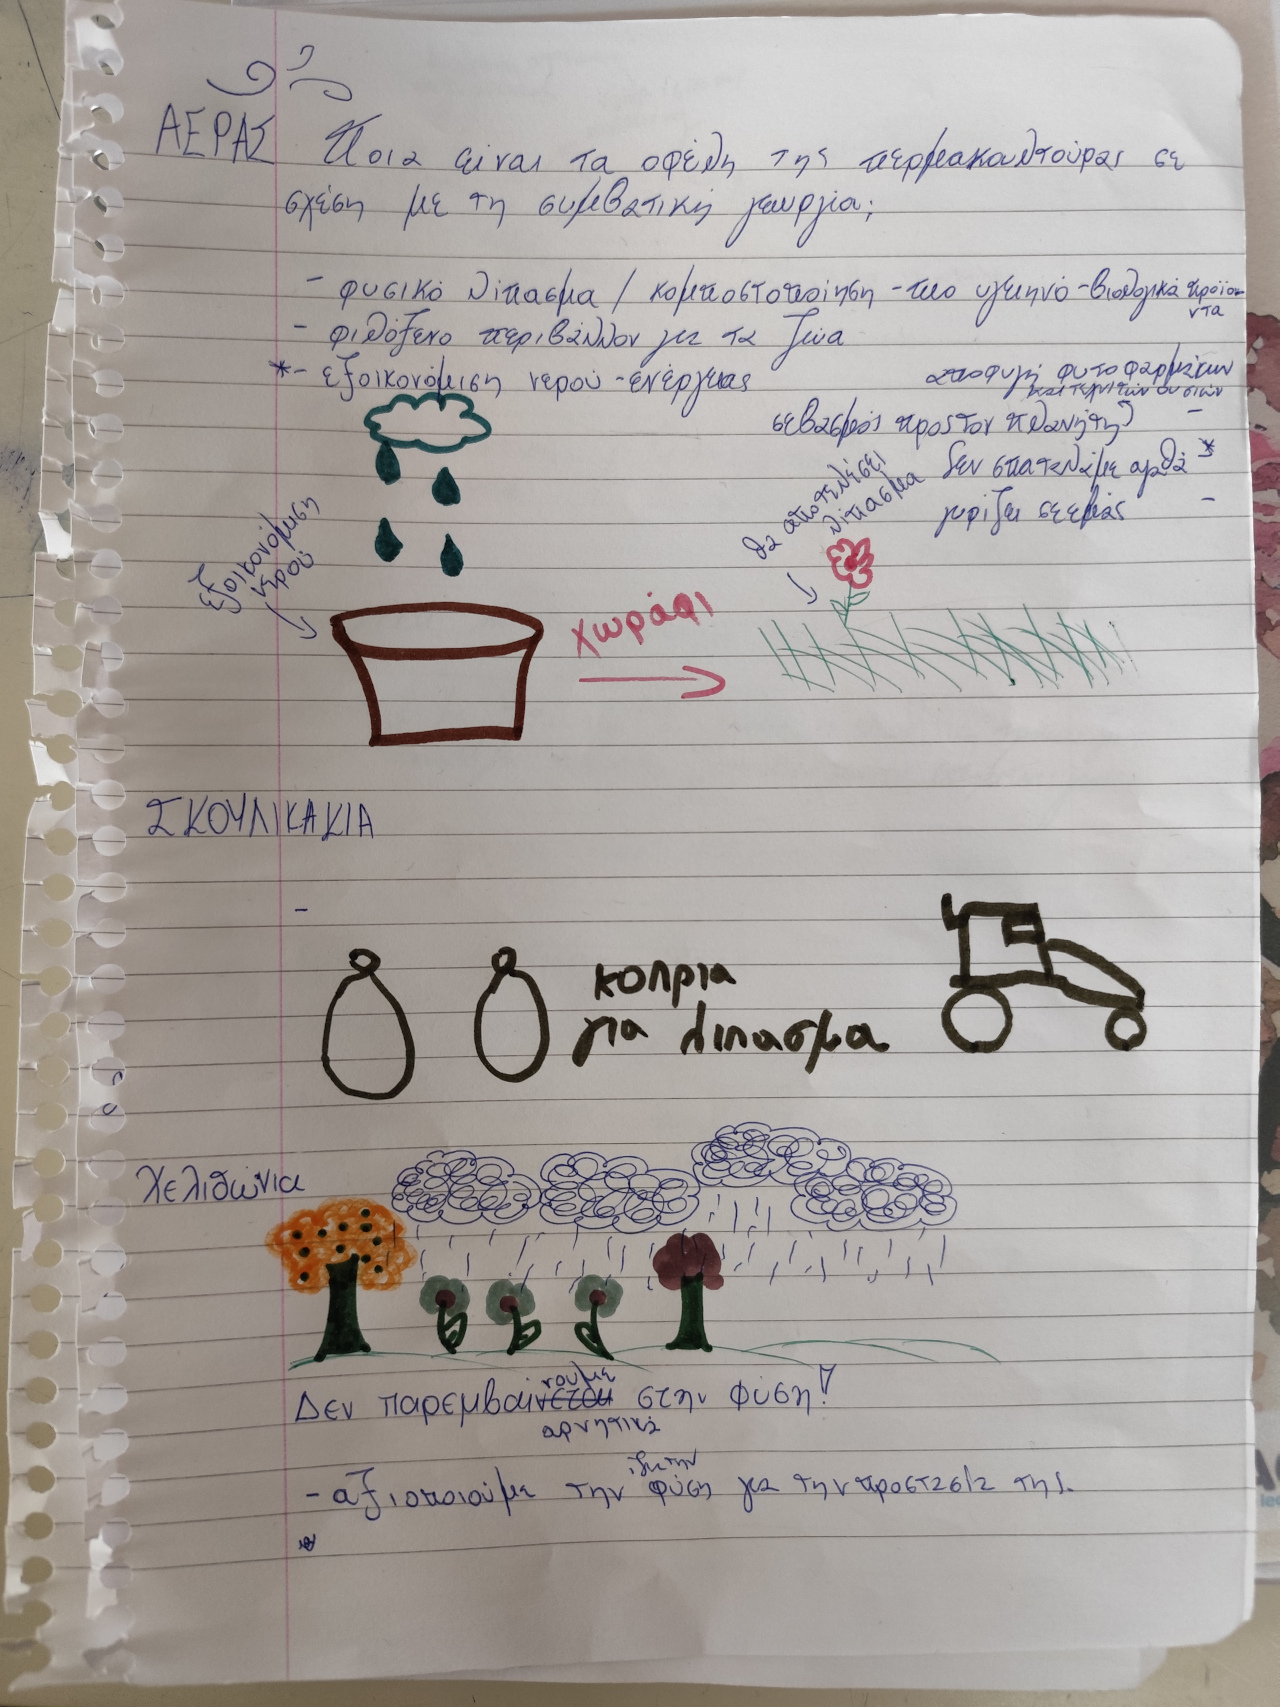 ΑΕΡΑΣ Ποια είναι τα οφέλη της περμακουλτούρας σε
σχέση με τη συμβατική γεωργία;
- φυσικό λίπασμα / κομποστοποίηση - πιο υγιεινό - βιολογικά προϊο-
ντα
- φιλόξενο περιβάλλον για τα ζώα
*- εξοικονόμιση νερού - ενέργειας
αποφυγή φυτοφαρμάκων
και τεχνιτών ουσιών
σεβασμός προς τον πλανήτη -
δεν σπαταλάμε αλλά *
γυρίζει σε εμάς -
θα αποτελέσει
λίπασμα
εξοικονόμιση
νερού
χωράφι
ΣΚΟΥΛΙΚΑΚΙΑ
-
κοπρια
για λιπασμα
Χελιδώνια
νουμε
Δεν παρεμβαίνεται στην φύση!
αρνητικά
ίδια την
- αξιοποιούμε την φύση για την προστασία της.